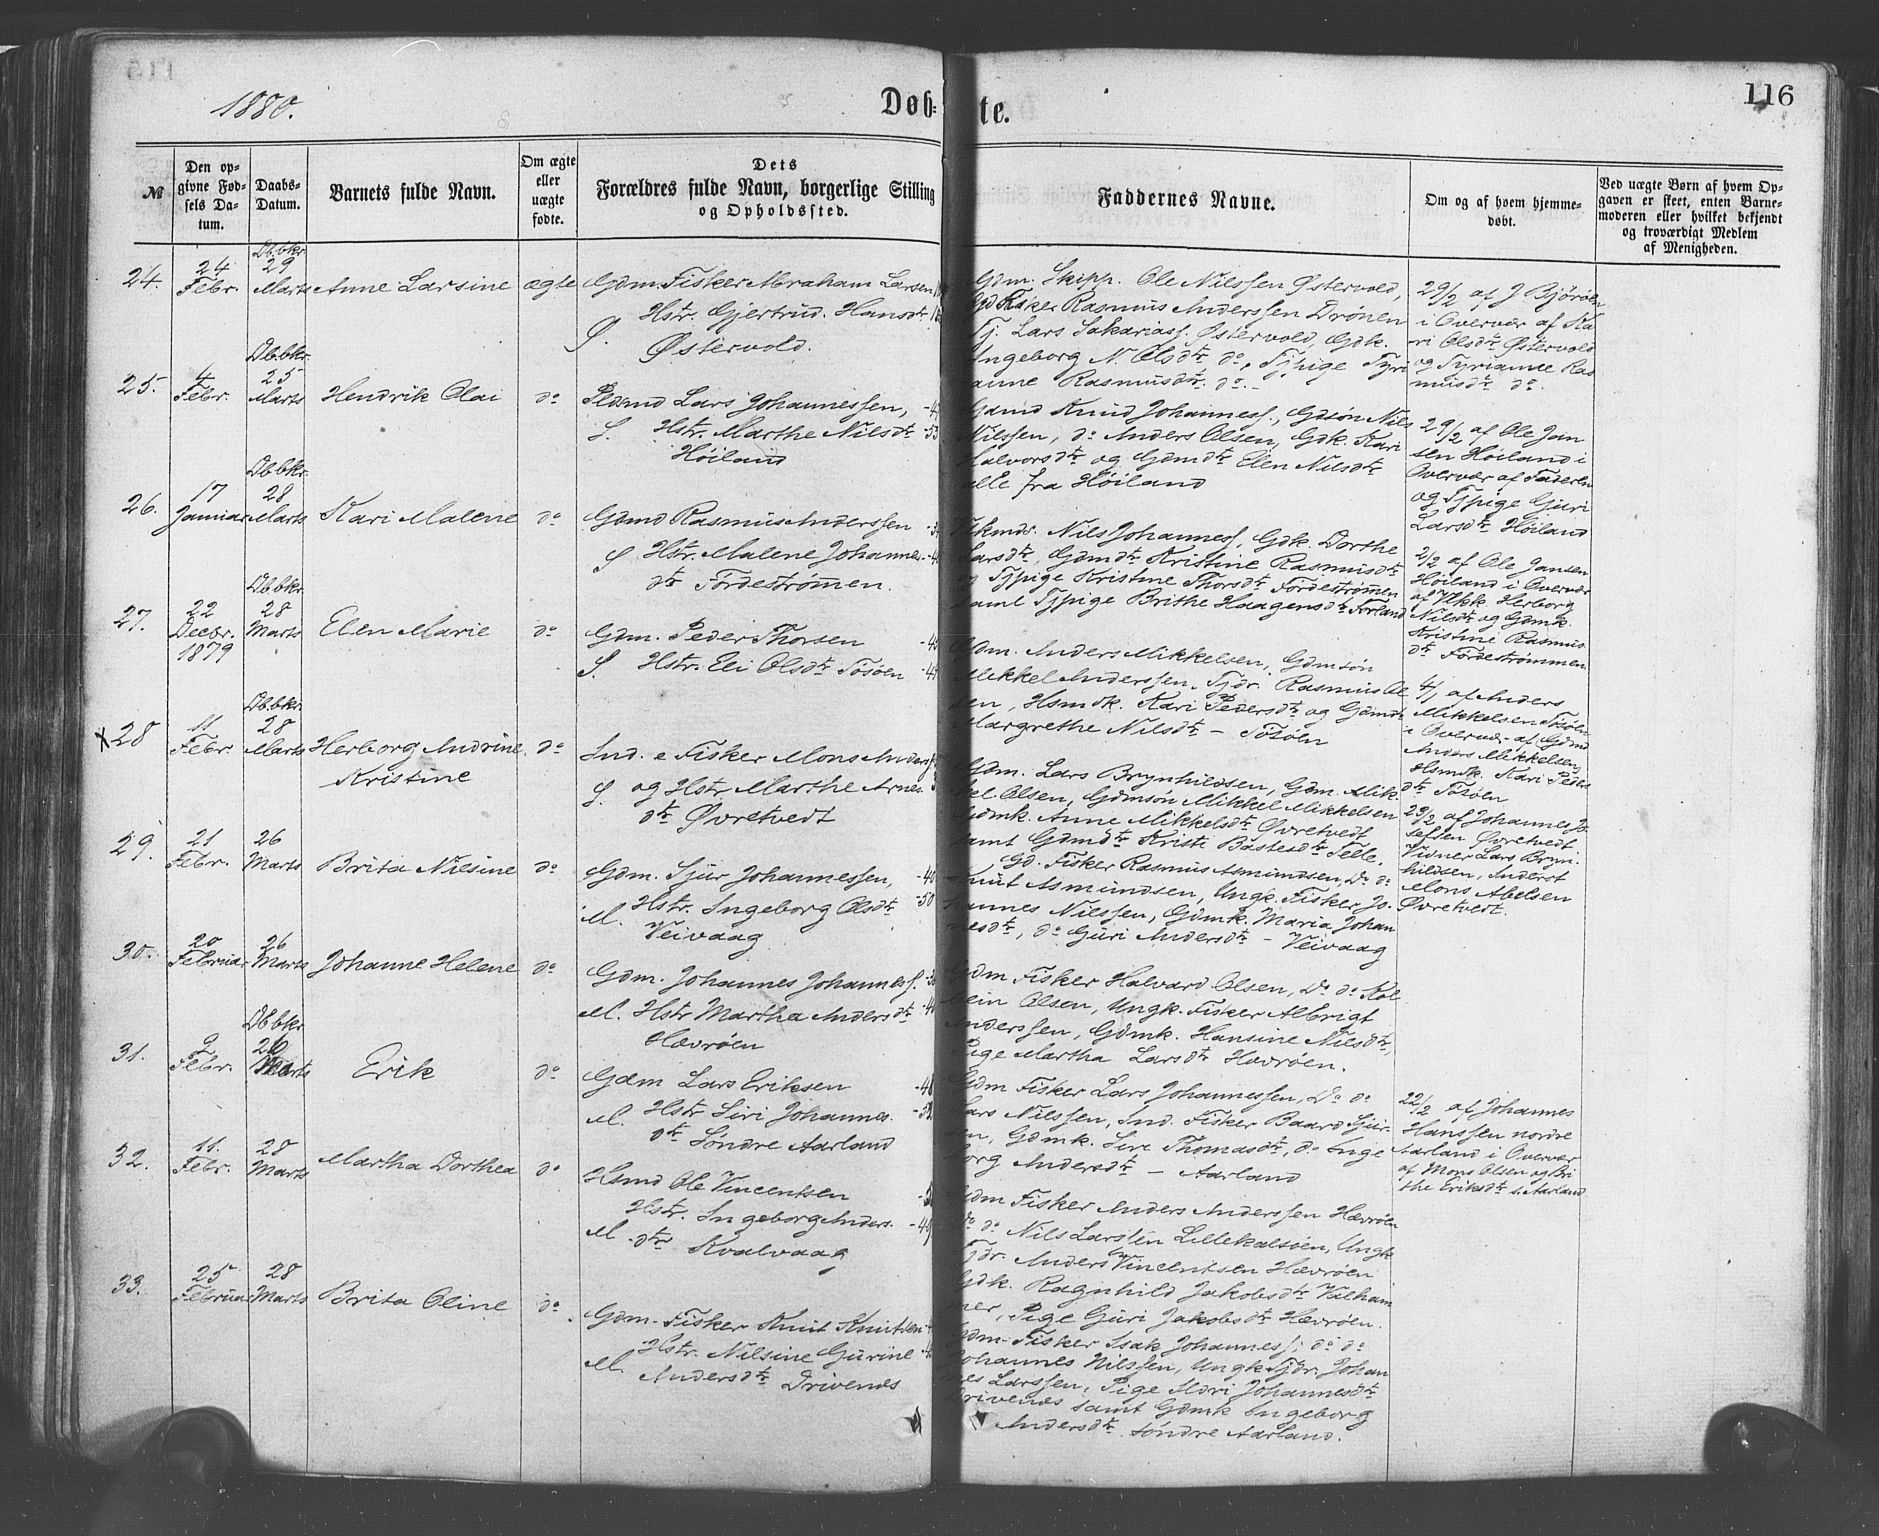 1880.
Døb-
te.
116
№
Den op-
givne Fød-
sels Da-
tum.
Daabs-
Datum.
Barnets fulde Navn.
Om ægte
eller
uægte
fødte.
Dets
Forældres fulde Navn, borgerlige Stilling
og Opholdssted.
Faddernes Navne.
Om og af hvem hjemme-
døbt.
Ved uægte Børn af hvem Op-
gaven er skeet, enten Barne-
moderen eller hvilket bekjendt
og troværdigt Medlem
af Menigheden.
24.
24
Febr.
Db.bkr.
29
Marts
Anne Larsine
ægte
Gdm. Fisker Abraham Larsen
Hstr. Gjertrud. Hansdtr
Ø. Østervold.
Gdm. Skipp. Ole Nilssen Østervold,
Gd Fisker Rasmus Anderssen Drönen
Tj. Lars Sakariass. Østervold, Gdk.
Ingeborg N. Olsdtr, do, Tjpige Tyri
anne Rasmusdtr. do.
29/2 af J Björöen
i Overvær af Ka
ri Olsdtr Østervold
og Tyrianne Ras
musdtr do.
25.
4
Febr.
Db.bkr.
25
Marts
Hendrik Olai
do
Plsmd Lars Johannessen,
S. Hstr. Marthe Nilsdtr -53
Höiland
Gdmd Knud Johanness., Gdsön Nils
Nilssen, do Anders Olsen, Gdk. Kari
Halvorsdtr og Gdmdtr Elen Nilsdtr
alle fra Höiland
29/2 af Ole Jan
sen Höiland i
Overvær af Faderen
og Tjpige Gjuri
Larsdtr Höiland
26.
17
Januar
Db.bkr.
28
Marts
Kari Malene
do
Gdmd Rasmus Anderssen
S Hstr. Malene Johannes
dtr Fördeströmmen.
Nils Johanness, Gdk. Dorthe
Larsdtr, Gdmdtr Kristine Rasmusdtr
og Tjpige Kristine Thorsdtr Fördeströmmen
samt Tjpige Brithe Haagensdtr Förland
2/2 af Ole Jansen
Höiland i Overvær
af Herborg
Nilsdtr og Gdmk.
Kristine Rasmus
dtr Fördeströmmen.
27.
22
Decbr.
1879
Db.bkr.
28
Marts
Elen Marie
do
Gdm. Peder Thorsen
S. Hstr. Eli Olsdtr Tösöen
Gdm. Anders Mikkelsen, Gdmsön
Mikkel Anderssen, Tjdr. Rasmus Ol
sen, Hsmdk. Kari Pedersdtr og Gdmdtr
Margrethe Nilsdtr - Tösöen
4/1 af Anders
Mikkelsen Tösöen
i Overvær af Gdmd
Anders Mikkelsen,
Hsmdk. Kari Peders
dtr Tösöen
x 28
11
Febr.
Db.bkr.
28
Marts
Herborg Andrine
Kristine
do
Ind. e Fisker Mons Anders
S. og Hstr Marthe Arnes
dtr Øvretvedt
Gdm. Lars Brynhildsen, Gdm. Mik-
kel Olsen, Gdmsön Mikkel Mikkelsen
Gdmk. Anne Mikkelsdtr Øvretvedt
samt Gdmdtr Kristi Bastesdtr Telle.
29/2 af Johannes Jo
sefsen Øvretvedt.
Vidner Lars Bryn-
hildsen, Inderst
Mons Abelsen
Øvretvedt.
29.
21
Febr.
26
Marts
Brita Nilsine
do
Gdm. Sjur Johannessen, -40
Hstr. Ingeborg Olsdtr -50
M. Veivaag
Gd. Fisker Rasmus Asmundsen, Do do
Knut Asmundsen, Ungk. Fisker Jo-
hannes Nilssen, Gdmk. Maria Johan
nesdtr, do Guri Andersdtr - Veivaag
30.
20
Februar
26
Marts
Johanne Helene
do
Gdm. Johannes Johanness.
M. Hstr Martha Andersdtr
Hævröen
Gdm Fisker Halvard Olsen, Do do Kol
bein Olsen, Ungk. Fisker Albrigt
Anderssen, Gdmk. Hansine Nilsdtr,
Pige Martha Larsdtr Hævröen.
31.
9
Febr.
Dbbkr.
26
Marts
Erik
do
Gdm Lars Eriksen -48
M. Hstr Siri Johannes. -52
dtr Söndre Aarland
Gdm Fisker Lars Johannessen, Do do
Lars Nilssen, Ind. Fisker Baard Sjur-
sen, Gdmk. Siri Thomasdtr, do Inge
borg Andersdtr - Aarland
22/2 af Johannes
Hanssen nordre
Aarland i Overvær
af Mons Olsen og Bri
the Eriksdtr s. Aarland
32.
11.
Febr.
28
Marts
Martha Dorthea
do
Hsmd Ole Vincentsen
Hstr. Ingeborg Anders. -49
M. dtr Kvalvaag
Gdm Fisker Anders Anderssen Hævröen
Do do Nils Larsen Lillekalsöen, Ungk
Tjdr. Anders Vincentsen Hævröen
Gdk. Ragnhild Jakobsdtr Valham
mer, Pige Guri Jakobsdtr Hævröen.
33.
25
Februar
28
Marts
Brita Oline
do
Gdm. Fisker Knut Knutsen
Hstr. Nilsine Gurine
M. Andersdtr Drivenes
Gdm. Fisker Isak Johanness; do do
Johannes Nilssen, Ungk Tjdr. Johan
nes Larssen, Pige Mari Johannesdtr
Drivenes samt Gdmk Ingeborg
Andersdtr. söndre Aarland.